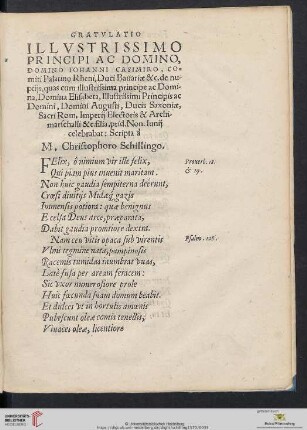 GRATVLATIO
ILLVSTRISSIMO
PRINCIPI AC DOMINO,
DOMINO IOHANNI CASIMIRO, CO-
miti Palatino Rheni, Duci Bauariæ &c. de nu-
ptijs, quas cum illustrissima principe ac Domi-
na, Domina Elisabeta, Illustrissimi Principis ac
Domini, Domini Augusti, Ducis Saxoniæ,
Sacri Rom. Imperij Electoris & Archi-
marschalli &c. filia, prid. Non. Iunij
celebrabat: Scripta à
M. Christophoro Schillingo.
FElix, ô nimium vir ille felix,
Prouerb. 12.
& 19.
Qui piam pius inuenit maritam.
Non huic gaudia sempiterna deerunt,
Crœsi diuitijs Midæq́ gazis
Immensis potiora: quæ benignus
E celsa Deus arce, præparata,
Dabit gaudia promtiore dextra.
Nam ceu vitis opaca sub virentis
Psalm. 128.
Vlmi tegmine nata, pampinosis
Racemis tumidas inumbrat vuas,
Latè fusa per aream feracem:
Sic vxor numerosiore prole
Huic fœcunda suam domum beabit.
Et dulces vt in hortulis amœnis
Pubescunt oleæ comis tenellis,
Viuaces oleæ, licentiore
UNIVERSITÄTS-
BIBLIOTHEK
HEIDELBERG
© Universitätsbibliothek Heidelberg